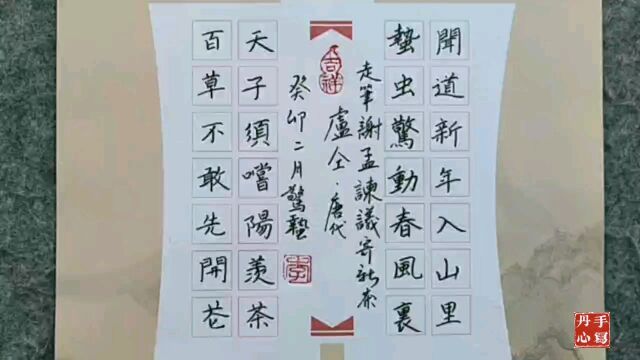 聞道新年入山里
蟄虫驚動春風裏
走筆謝孟諫議寄新茶
盧仝·唐代
吉祥
天子須嚐陽羡茶
百草不敢先開花
癸卯二月驚蟄
李
手寫丹心